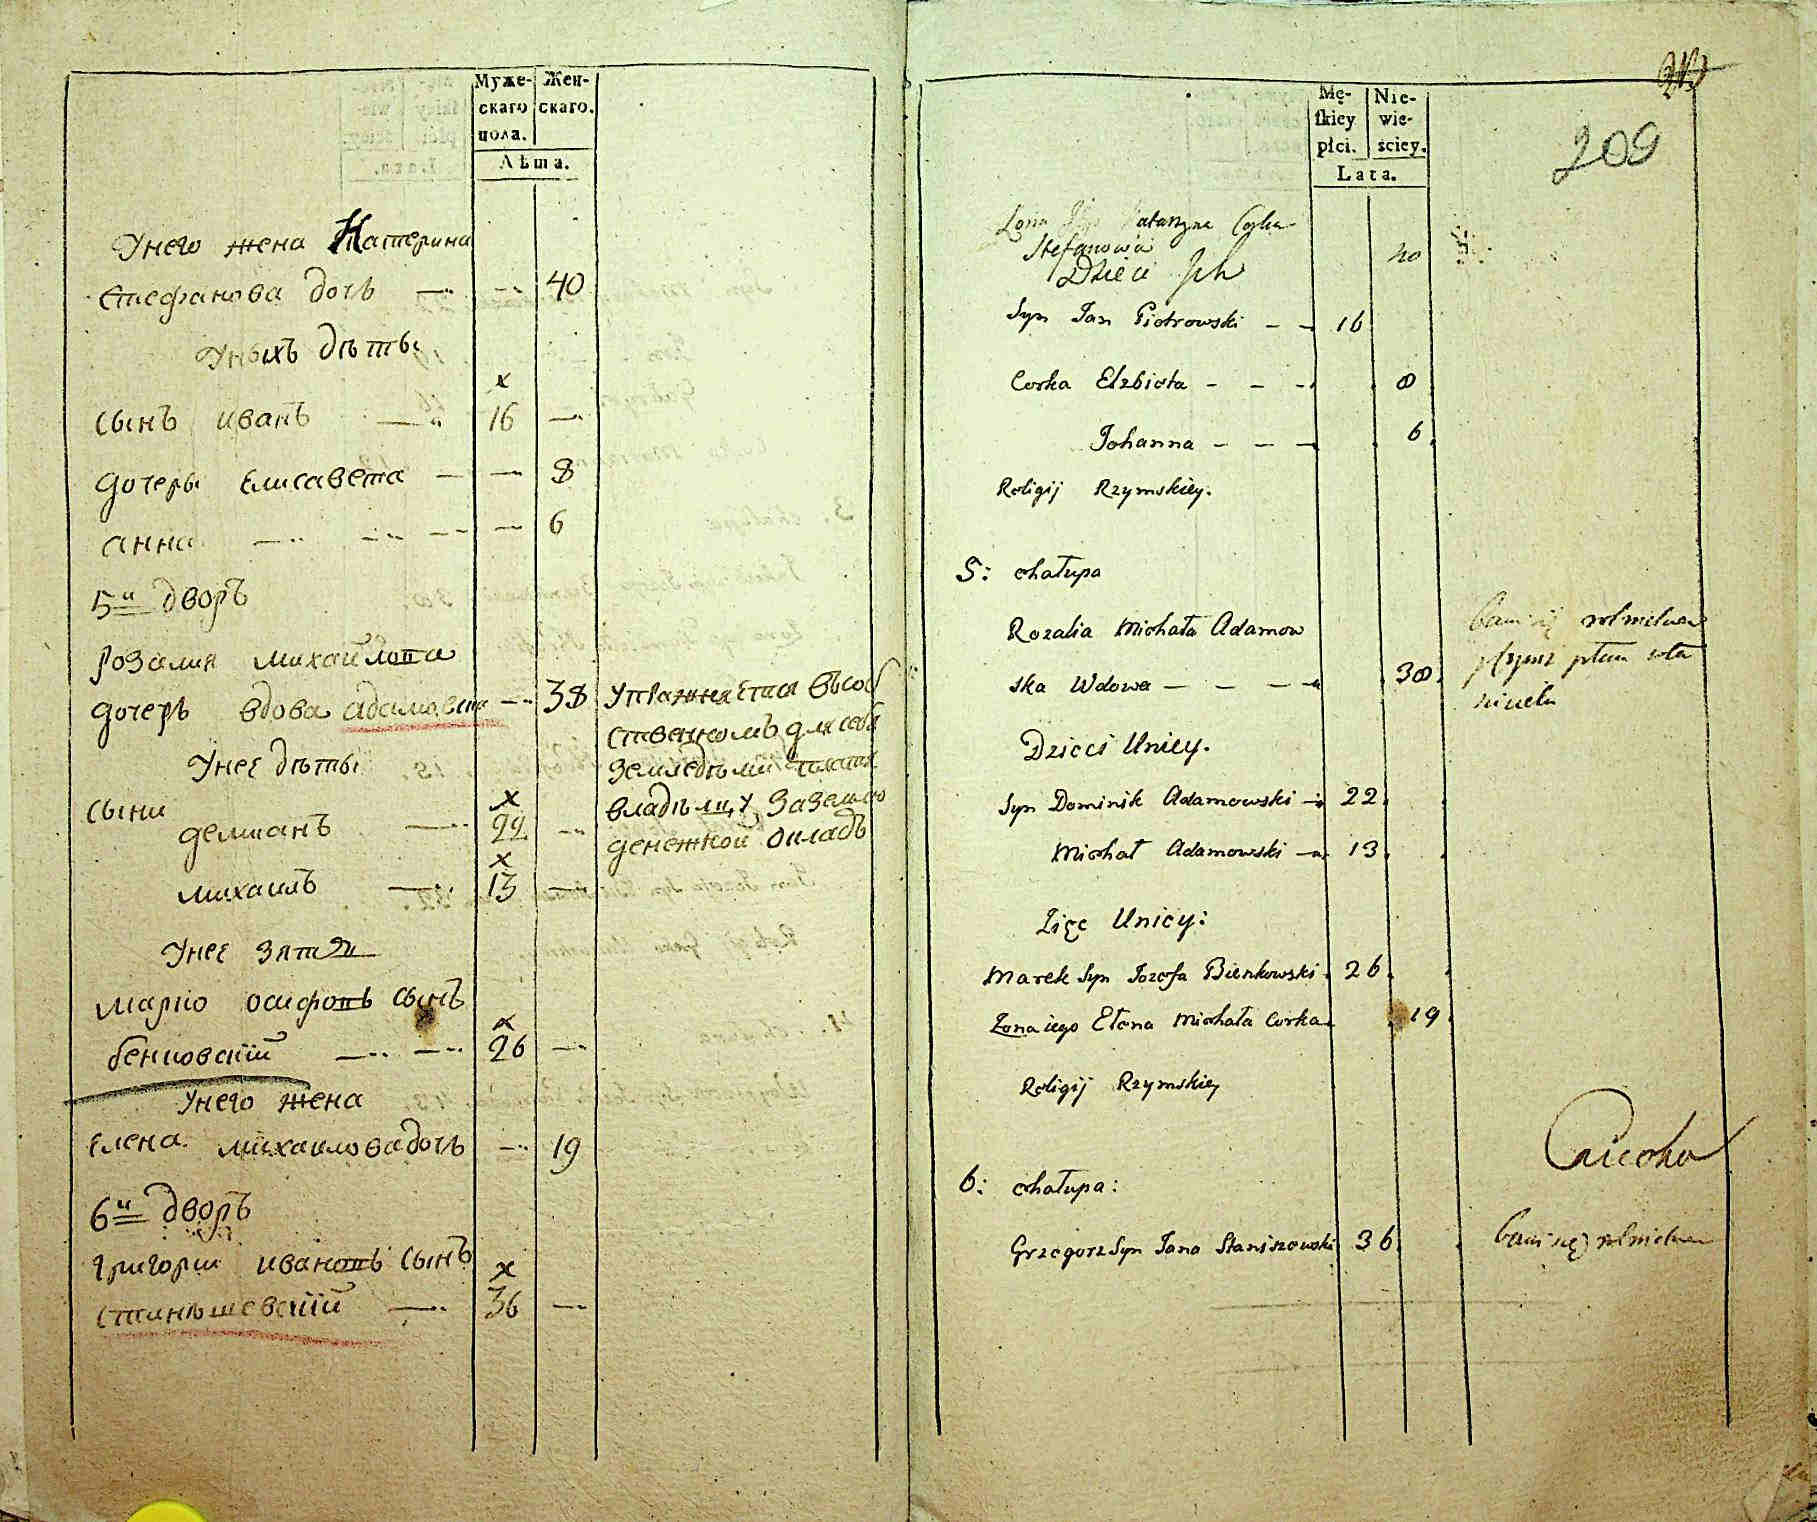 Муже-
скаго
пола.
Жен-
скаго.
Лѣта.
Унего жена Катерина
Стефанова дочь — 40
Унихъ дѣты
сынъ иванъ — 16 —
дочеры Елисавета — — 8
анна — — 6
5и дворъ
розалия михайлова
дочеръ вдова адамовска — 38
Унее дѣты
сыни
демианъ — 22 —
михаилъ — 13 —
Унее зятя
марко осифовъ сынъ
бенковский — — 26 —
Унего жена
Елена михаилова дочь — 19
6и дворъ
григории ивановъ сынъ
станишевский — 36 —
упражняется въ соб
ственномъ для себя
земледѣлии платя
владѣлцу за землю
денежной окладъ
Mę-
skiey
płci.
Nie-
wie-
ściey.
Lata.
209
Żona Katarzyna Corka
Stefanowa 40
Dzieci Jch
Syn Jan Piotrowski — — 16
Corka Elzbieta — — — 8
Johanna — — — 6
Religij Rzymskiey.
5: chałupa
Rozalia Michała Adamow
ska Wdowa — — — 38
Dzieci Unicy.
Syn Dominik Adamowski — 22
Michał Adamowski — 13
Zięc Unicy:
Marek Syn Jozefa Bienkowski 26
Zona iego Elena Michała Corka 19
Religij Rzymskiey
6: chałupa:
Grzegorz Syn Jana Staniszewski 36
bawi się rolnictwem
bawi się rolnictwem